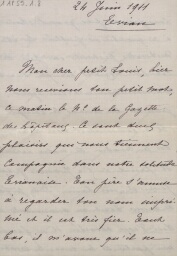 24 Juin 1911
Evian
Mon cher petit Louis, hier
nous recevions ton petit mot,
ce matin le N° de la Gazette
des hôpitaux. Ce sont deux
plaisirs qui nous tiennent
compagnie dans notre solitude
Evianaise. Ton père s'amuse
à regarder ton nom imprimé
et il est très fier. Tout
bas, il m'avoue qu'il ne